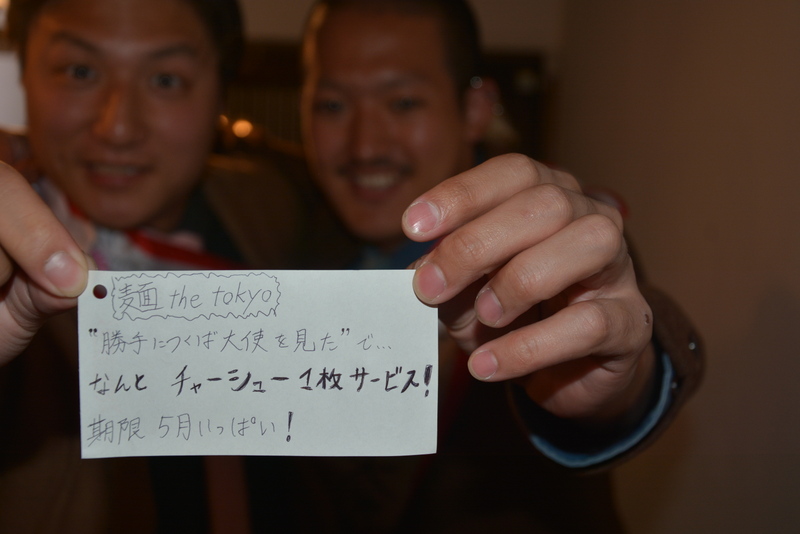 麺 the tokyo
"勝手につくば大使を見た"で...
なんと チャーシュー1枚サービス!
期限 5月いっぱい!